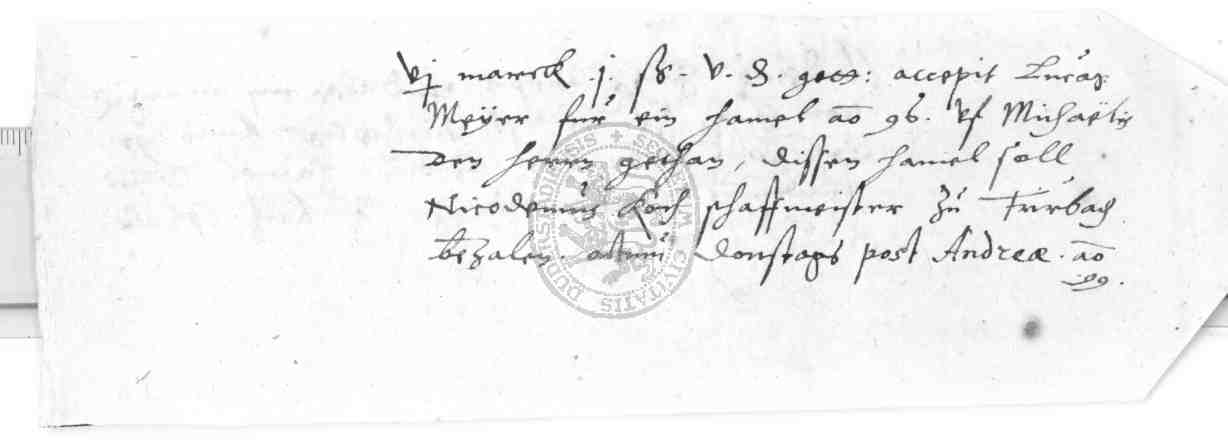 vj marck .j. ss. v. d. gott: accepit Lucas
Meÿer fur ein hamel ao 96. vf Michaëlis
den herrn gethan, dissen hamel soll
Nicodemus Koch schaffmeister zu Trurbach
bezalen. actum donstags post Andreæ. ao
99.
SIGILLUM CIVITATIS DUDERSTADENSIS